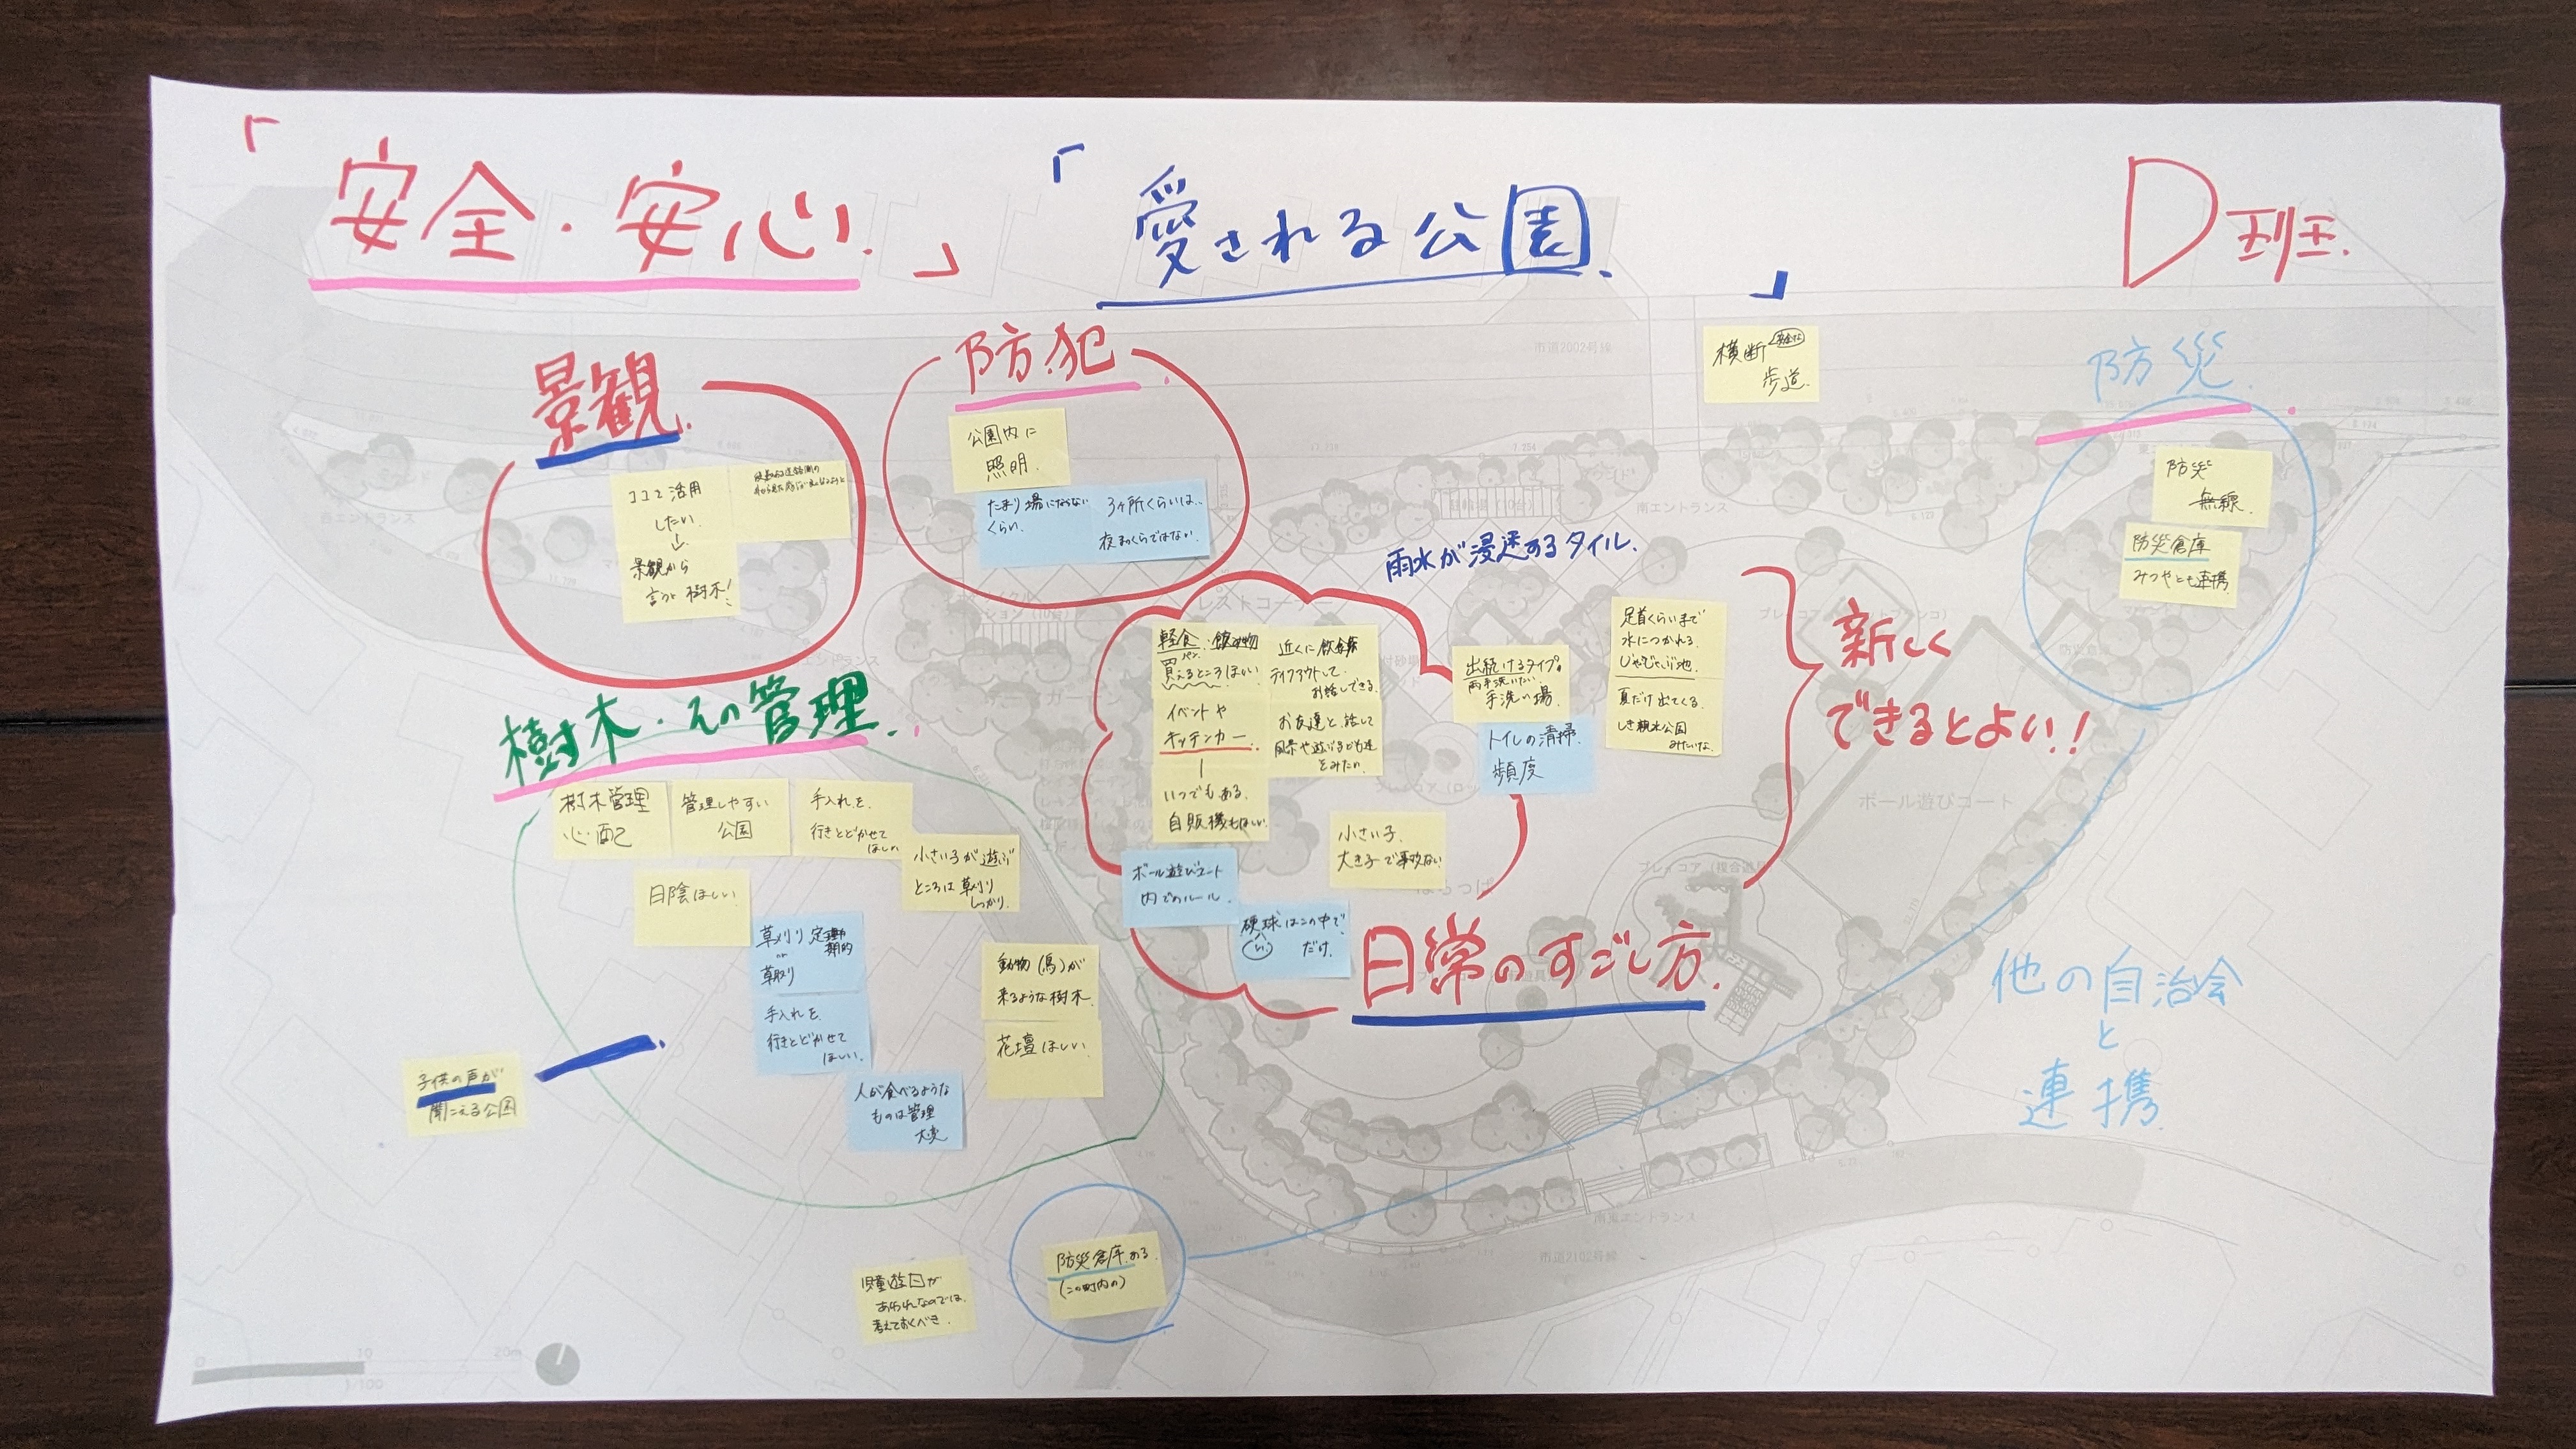 「安全・安心.」
「愛される公園.」
D班.
景観.
ココで活用
したい.
↓
景観から
言うと樹木!
防犯
公園内に
照明.
たまり場にならない
くらい.
3ヶ所くらいは..
夜まっくらではない.
横断
安全な
歩道.
防災.
防災
無線.
防災倉庫
みつやとも連携
市道2002号線
南エントランス
雨水が浸透するタイル.
レストコーナー
樹木・その管理.
樹木管理
心配
管理しやすい
公園
手入れを.
行きとどかせて
ほしい
小さい子が遊ぶ
ところは草刈り
しっかり.
日陰ほしい
草刈り定期的
or
草取り
手入れを.
行きとどかせて
ほしい.
動物(鳥)が
来るような樹木.
花壇ほしい.
人が食べるような
ものは管理
大変
子供の声が
聞こえる公園
軽食・飲み物
パン.
買えるところほしい
イベントや
キッチンカー.
いつでもある.
自販機もほしい.
近くに飲食
テイクアウトして.
お話しできる.
お友達と、話して
風景や遊ぶ子ども達
をみたい.
出続けるタイプ。
両手洗いたい
手洗い場.
トイレの清掃.
頻度
足首くらいまで
水につかれる.
じゃぶじゃぶ池.
夏だけ出てくる.
しき親水公園
みたいな.
新しく
できるとよい!!
小さい子.
大きい子で事故ない
ボール遊びコート
内でのルール.
硬球はこの中で
だけ.
日常のすごし方.
ボール遊びコート
はらっぱ
他の自治会
と
連携
防災倉庫ある.
(この町内の)
児童遊園が
あふれなのでは.
考えておくべき.
南東エントランス
市道2102号線
0 10 20m
1/100